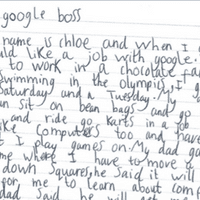 google boss
name is chloe and when I
like a job with google.
to work in a chocolate fa
swimming in the olympics, I g
Saturday and a Tuesday. My
sit on bean bags and go
and ride go karts in a job
like computers too and have
I play games on. My dad ga
me where I have to move a
down squares, he said it will
for me to learn about comp
dad said he will get me